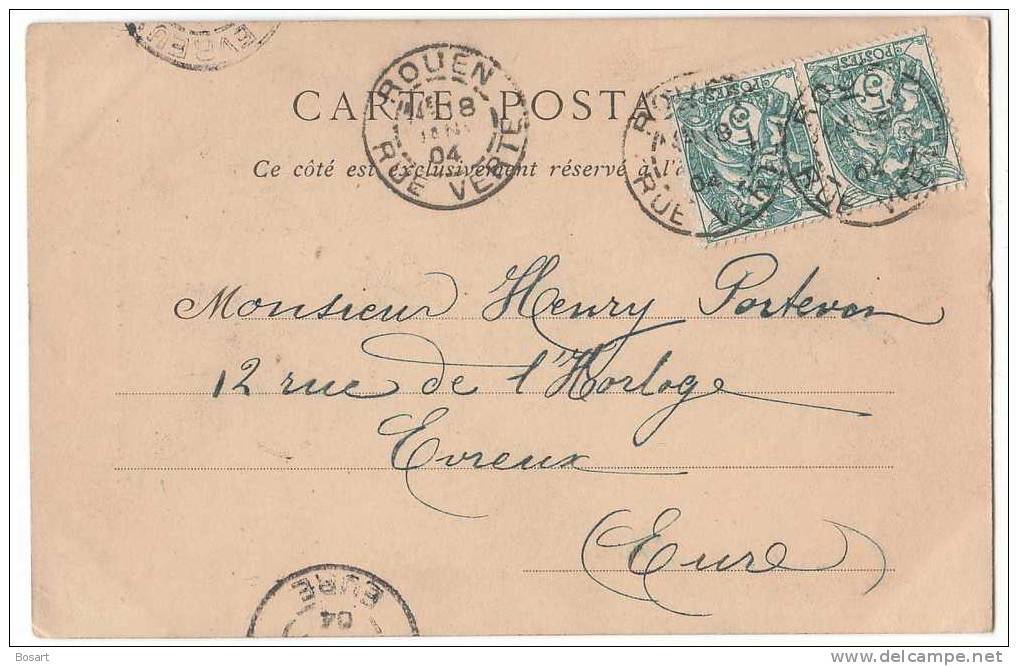 EVREU
CARTE POSTA
ROUEN
18
JANV
04
RUE VERTE
POSTES
5
POSTES
5
RUE VERTE
04
Ce côté est exclusivement réservé à l'a
Monsieur Henry Portevin
12 rue de l'Horloge
Evreux
(Eure)
EURE
04
Bosart
www.delcampe.net